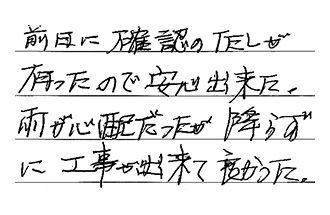 前日に確認のTELが
有ったので安心出来た。
雨が心配だったが降らず
に工事が出来て良かった。